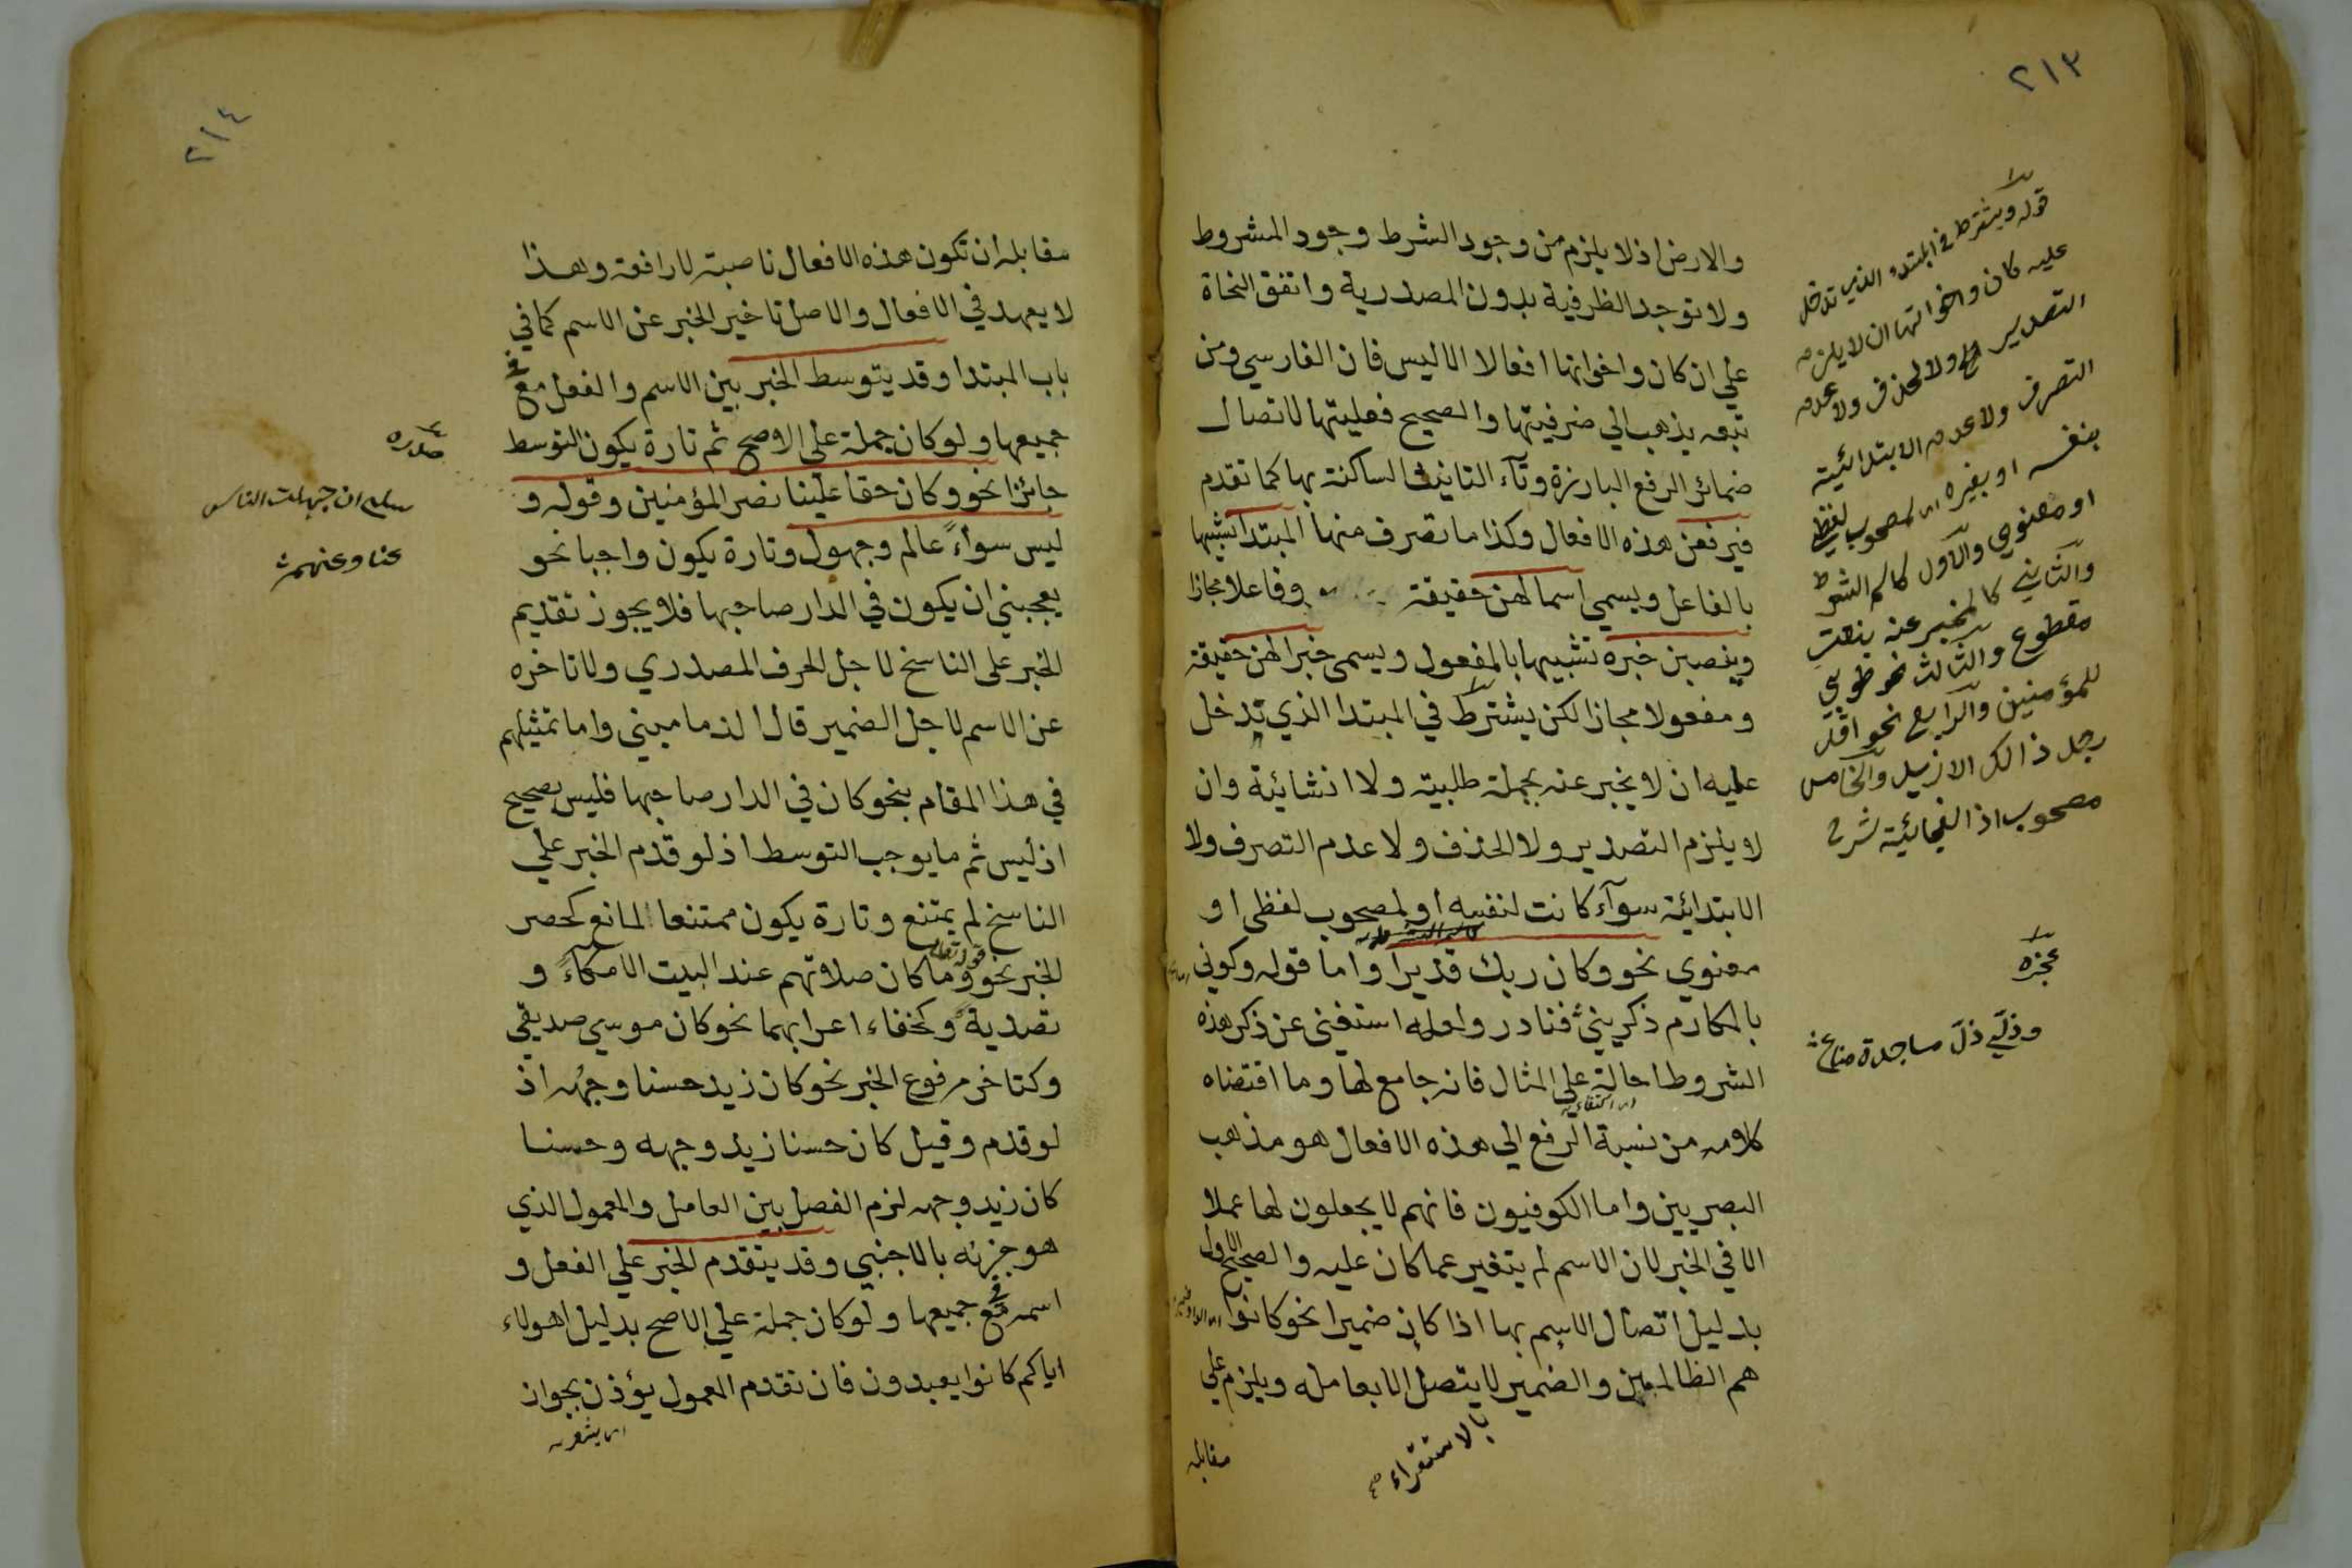 ٢١٣
والارض اذ لا يلزم من وجود الشرط وجود المشروط
ولا توجد الظرفية بدون المصدرية واتفق النحاة
علي ان كان واخواتها افعالا الا ليس فان الفارسي ومن
تبعه يذهب الي حرفيتها والصحيح فعليتها لاتصال
ضمائر الرفع البارزة وتآء التانيث الساكنة بها كما تقدم
فيرفعن هذه الافعال وكذا ما تصرف منها المبتدا تشبيها
بالفاعل ويسمي اسما لهن حقيقة وفاعلا مجازا
وينصبن خبره تشبيها بالمفعول ويسمى خبرا لهن حقيقة
ومفعولا مجازا لكن يشترط في المبتدا الذي تدخل
عليه ان لا يخبر عنه بجملة طلبية ولا انشائية وان
لا يلزم التصدير ولا الحذف ولا عدم التصرف ولا
الابتدائة سوآء كانت لنفسه او لمصحوب لفظي او
معنوي نحو وكان ربك قديرا واما قوله وكوني
بالمكارم ذكريني فنادر ولعله استغنى عن ذكر هذه
الشروط احالة علي المثال فانه جامع لها وما اقتضاه
كلامه من نسبة الرفع الي هذه الافعال هو مذهب
البصريين واما الكوفيون فانهم لا يجعلون لها عملا
الا في الخبر لان الاسم لم يتغير عما كان عليه والصحيح الاول
بدليل اتصال الاسم بها اذا كان ضميرا نحو كانوا
هم الظالمين والضمير لا يتصل الا بعامله ويلزم علي
بالاستقراء
مقابله
قوله ويشترط في المبتدء الذي تدخل
عليه كان واخواتها ان لا يلزم
التصدير ولا الحذف ولا عدم
التصرف ولا عدم الابتدائية
بنفسه او بغيره لمصحوب لفظي
او معنوي والاول كاسم الشرط
والثاني كالمخبر عنه بنعت
مقطوع والثالث نحو طوبي
للمؤمنين والرابع نحو اقل
رجل ذالك الا زيد والخامس
مصحوب اذا الفجائية شرح
عجزه
ودلي دل ماجدة صناع
٢١٤
مقابله ان تكون هذه الافعال ناصبة لا رافعة وهذا
لا يعهد في الافعال والاصل تاخير الخبر عن الاسم كما في
باب المبتدا وقد يتوسط الخبر بين الاسم والفعل مع
جميعها ولو كان جملة علي الاصح ثم تارة يكون التوسط
جائزا نحو وكان حقا علينا نصر المؤمنين وقوله و
ليس سواءً عالم وجهول وتارة يكون واجبا نحو
يعجبني ان يكون في الدار صاحبها فلا يجوز تقديم
الخبر على الناسخ لاجل الحرف المصدري ولا تاخره
عن الاسم لاجل الضمير قال الدماميني واما تمثيلهم
في هذا المقام بنحو كان في الدار صاحبها فليس بصحيح
اذ ليس ثم ما يوجب التوسط اذ لو قدم الخبر علي
الناسخ لم يمتنع وتارة يكون ممتنعا لمانع كحصر
الخبر نحو قوله تعالى وما كان صلاتهم عند البيت الا مكاءً و
تصدية وكخفاء اعرابهما نحو كان موسي صديقي
وكتاخر مرفوع الخبر نحو كان زيد حسنا وجهه اذ
لو قدم وقيل كان حسنا زيد وجهه وحسنا
كان زيد وجهه لزم الفصل بين العامل والمعمول الذي
هو جزئه بالاجنبي وقد يتقدم الخبر علي الفعل و
اسمه مع جميعها ولو كان جملة علي الاصح بدليل اهولاء
اياكم كانوا يعبدون فان تقدم المعمول يؤذن بجواز
اي يشعر
صدره
سلي ان جهلت الناس
عنا وعنهم